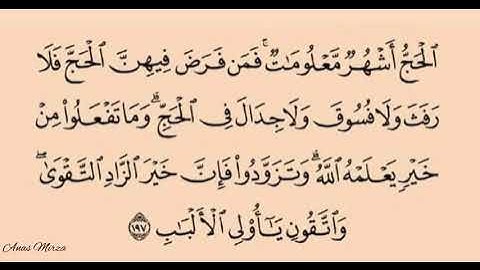 ٱلۡحَجُّ أَشۡهُرٞ مَّعۡلُومَٰتٞۚ فَمَن فَرَضَ فِيهِنَّ ٱلۡحَجَّ فَلَا
رَفَثَ وَلَا فُسُوقَ وَلَا جِدَالَ فِي ٱلۡحَجِّۗ وَمَا تَفۡعَلُواْ مِنۡ
خَيۡرٖ يَعۡلَمۡهُ ٱللَّهُۗ وَتَزَوَّدُواْ فَإِنَّ خَيۡرَ ٱلزَّادِ ٱلتَّقۡوَىٰۖ
وَٱتَّقُونِ يَٰٓأُوْلِي ٱلۡأَلۡبَٰبِ ١٩٧
Anas Mirza